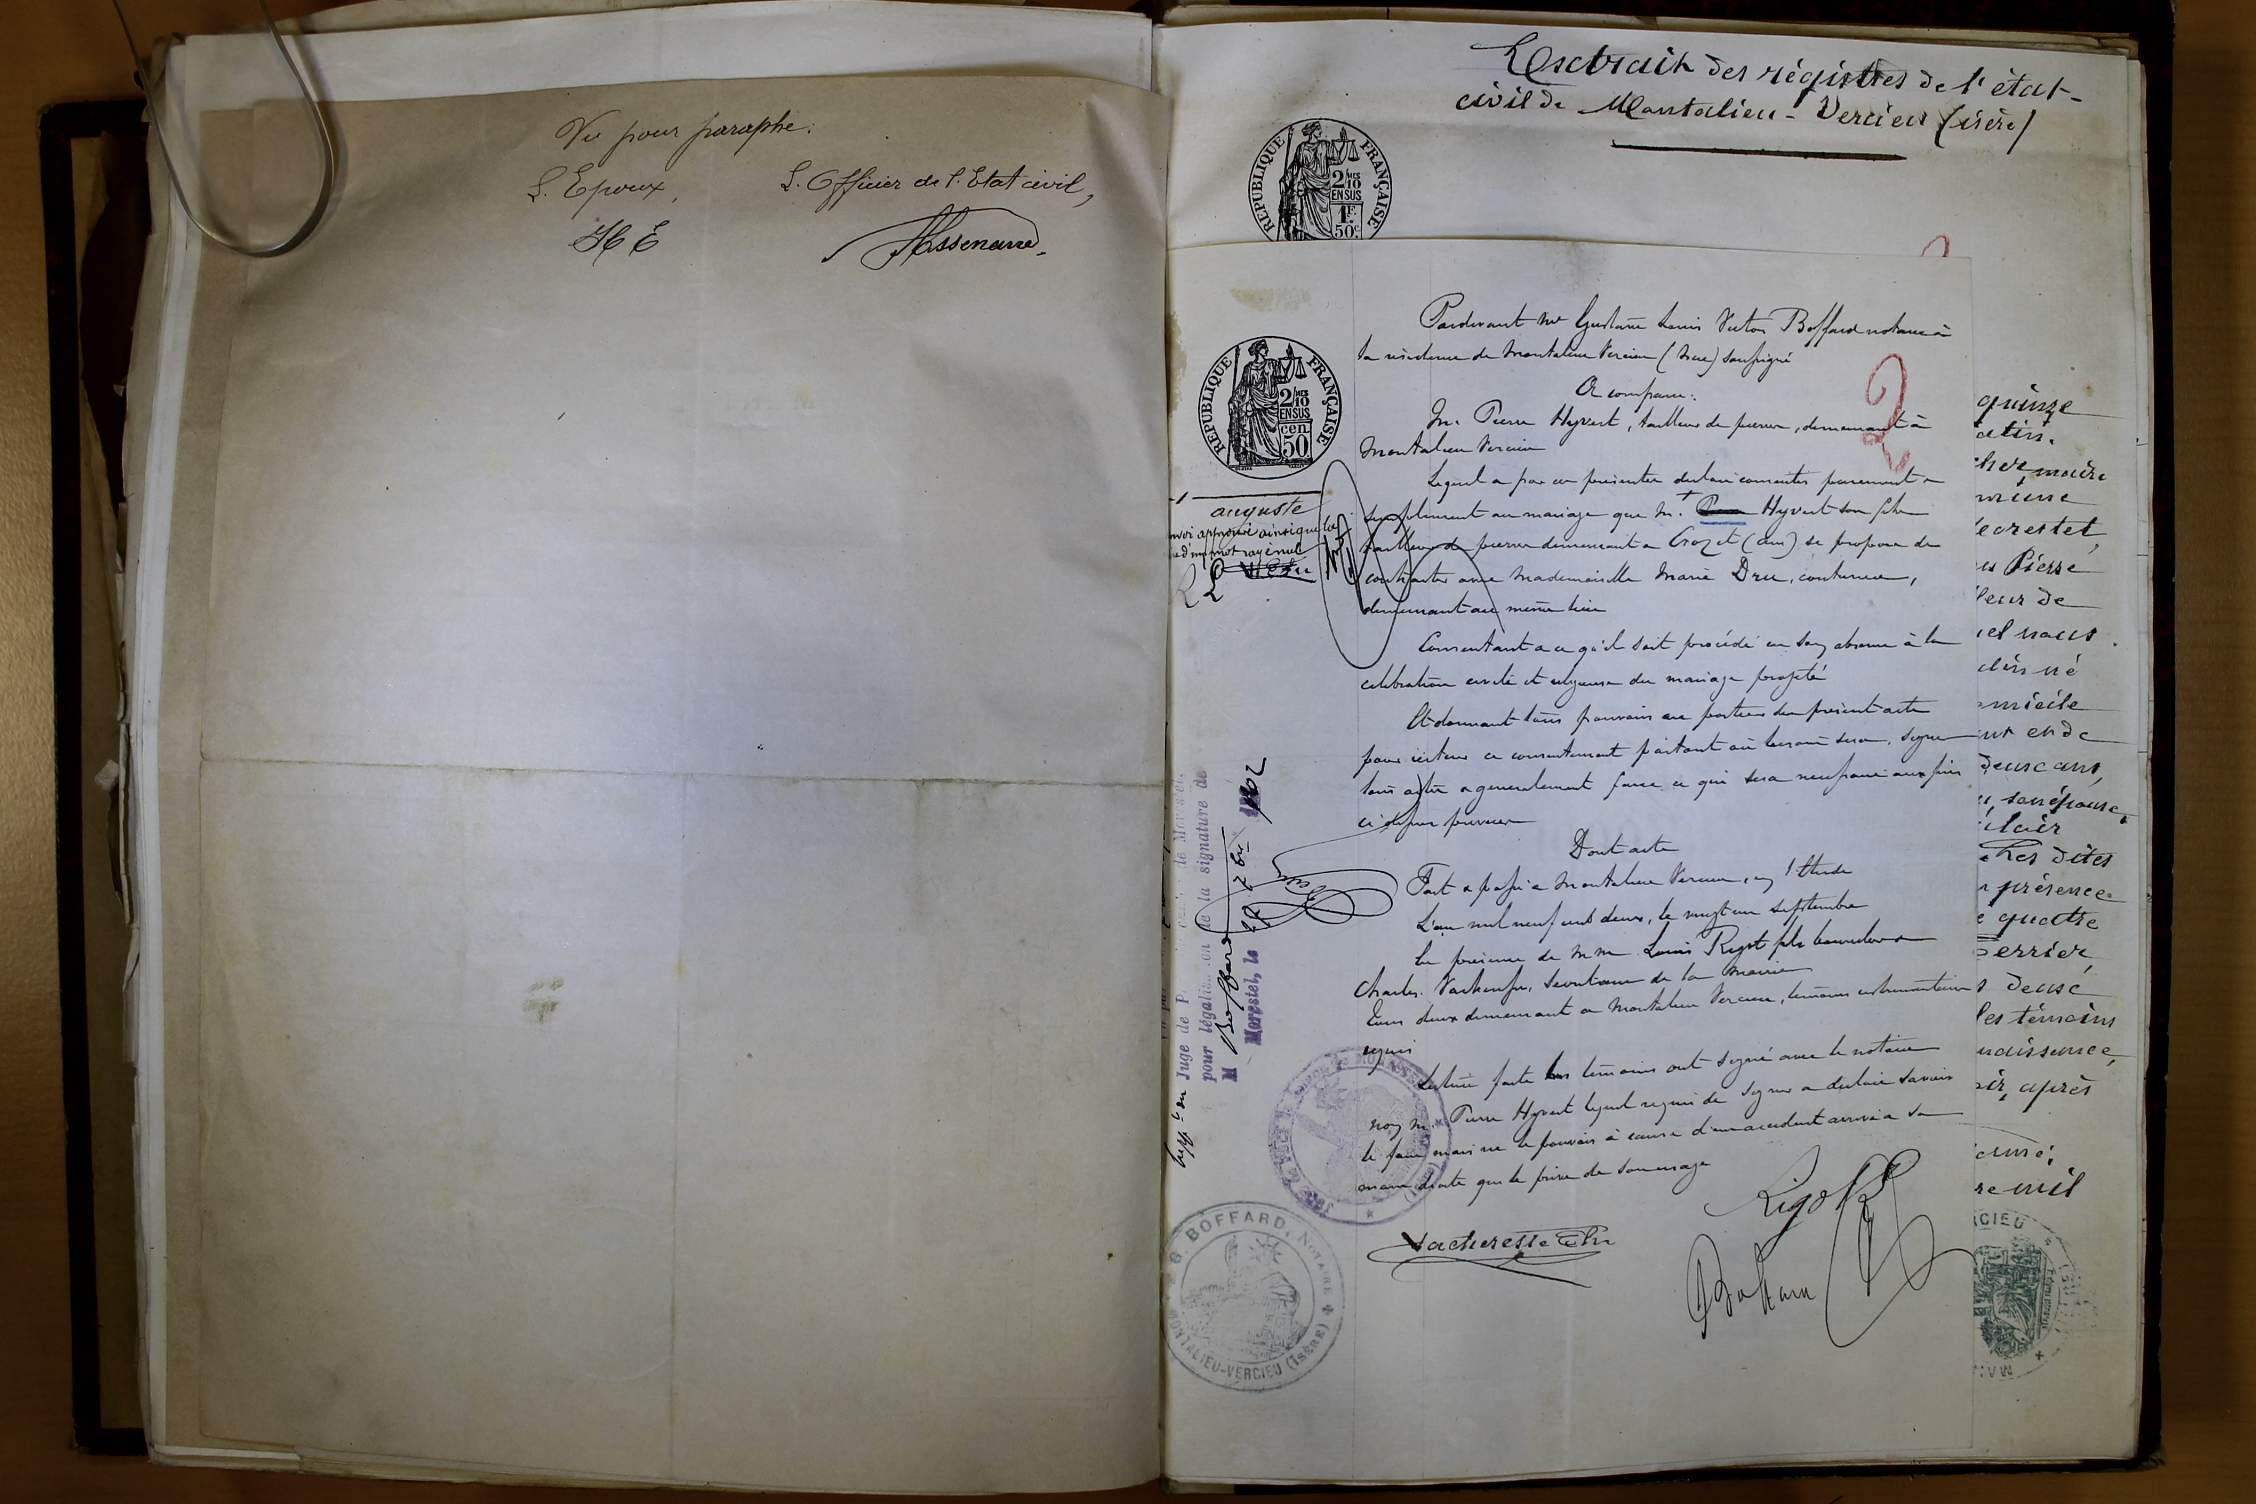 Vu pour paraphe:
L'Epoux,
L'Officier de l'Etat civil,
H E
Extrait des régistres de l'état-
civil de Montalieu-Vercieu (isère)
RÉPUBLIQUE FRANÇAISE
2/10 MES
EN SUS
1F.
50c.
Pardevant Me Gustave Louis Victor Boffard notaire à
la résidence de Montalieu Vercieu (Isère) soussigné
A comparu:
M. Pierre Hyvert, tailleur de pierre, demeurant à
Montalieu Vercieu
Lequel a par ces présentes déclaré consentir purement &
simplement au mariage que M. + Pierre Hyvert son fils
tailleur de pierre demeurant à Crozet (ain) se propose de
contracter avec Mademoiselle Marie Dru, couturière,
demeurant au même lieu
Consentant a ce qu'il soit procédé en son absence à la
célébration civile et religieuse du mariage projeté
Et donnant tous pouvoirs au porteur du présent acte
pour réitérer ce consentement partout où besoin sera, signer
tous actes & généralement faire ce qui sera nécessaire aux fins
ci dessus
Dont acte
Fait & passé a Montalieu Vercieu, en l'Etude
L'an mil neuf cent deux, le vingt un septembre
En présence de MM. Louis Rigot fils &
Charles Vacheresse, Secrétaire de la Mairie
Tous deux demeurant a Montalieu Vercieu, témoins instrumentaires
requis
Lecture faite les témoins ont signé avec le notaire
non M. Pierre Hyvert lequel requis de signer a déclaré savoir
le faire mais ne le pouvoir à cause d'un accident arrivé a sa
main droite qui le prive de son usage
Rigot
Vacheresse Chs
Boffard
RÉPUBLIQUE FRANÇAISE
2/10 MES
EN SUS
cen.
50
auguste
nvoi approuvé ainsi que la
re d'un mot rayé nul
2
Juge de P
pour légalisation de la signature de
M Boffard
Morestel, le 22 7bre 1902
G. BOFFARD, NOTAIRE
MONTALIEU-VERCIEU (Isère)
quinze
atin.
cher maire
ecrestet,
Pierre
leur de
el nous
né
omicile
en de
deux ans,
son épouse,
Les dites
présence
quatre
Perrier,
deux
les témoins
naissance,
après
re mil
RCIEU